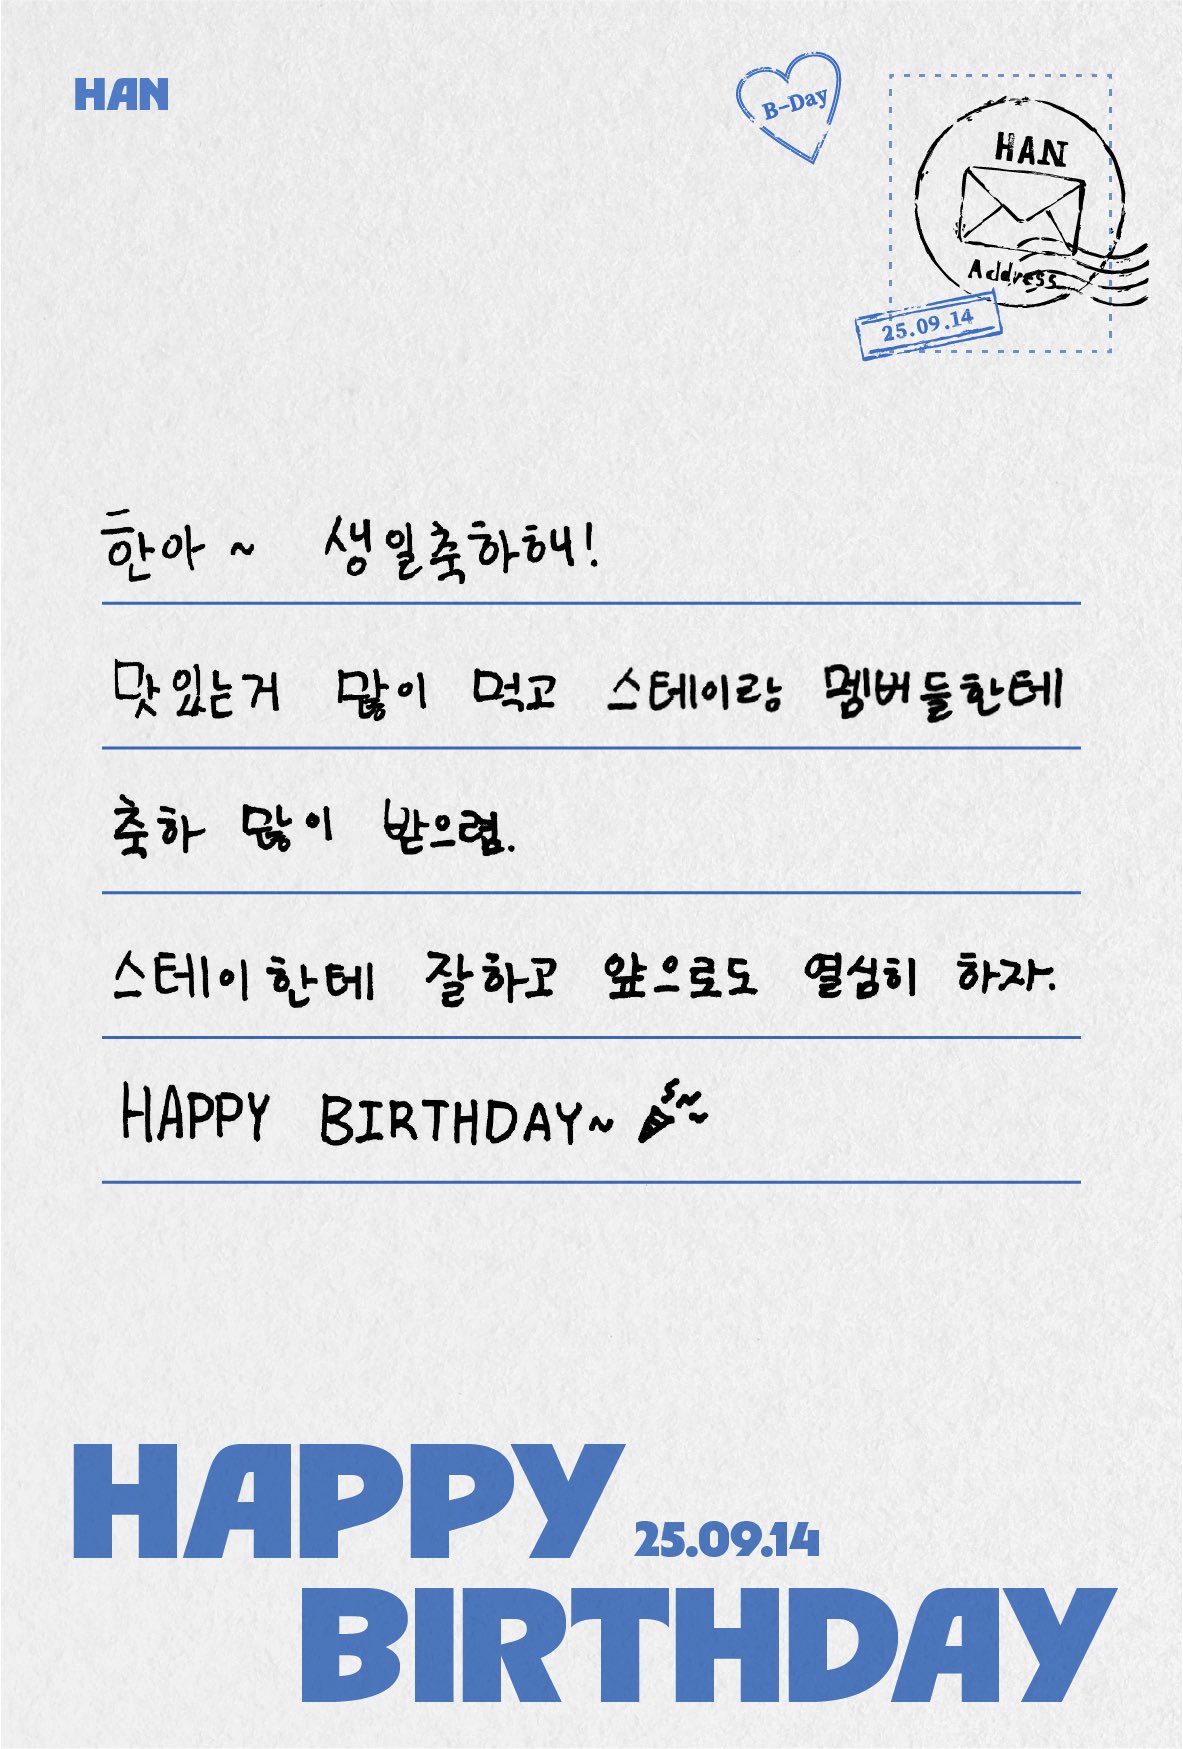 HAN
B-Day
HAN
Address
25.09.14
한아~ 생일축하해!
맛있는거 많이 먹고 스테이랑 멤버들한테
축하 많이 받으렴.
스테이한테 잘하고 앞으로도 열심히 하자.
HAPPY BIRTHDAY~
HAPPY 25.09.14
BIRTHDAY